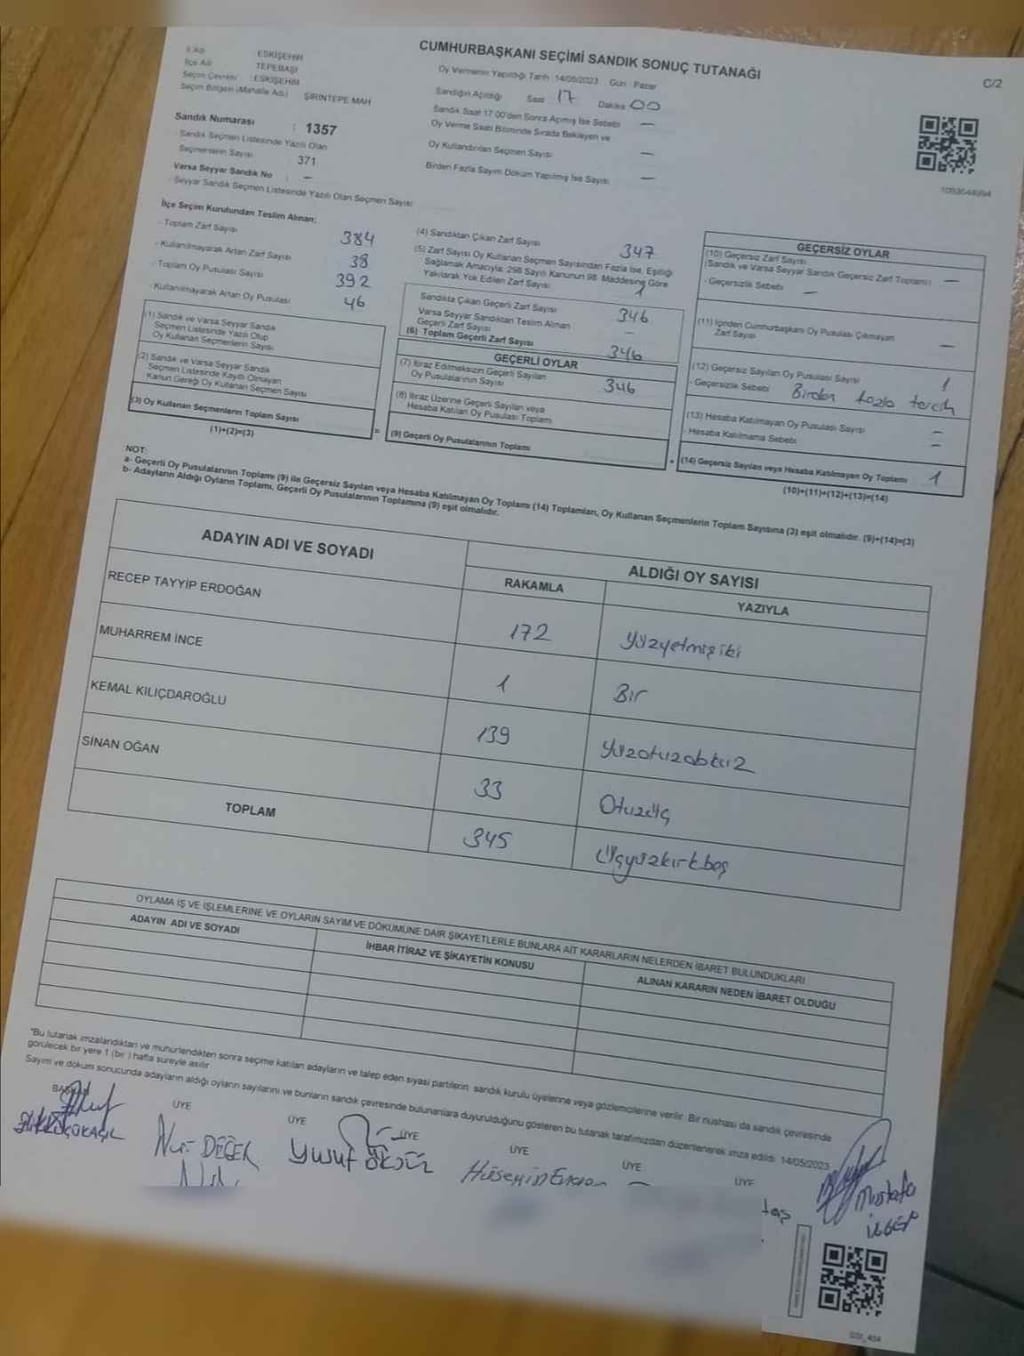 CUMHURBAŞKANI SEÇİMİ SANDIK SONUÇ TUTANAĞI
C/2
İl Adı : ESKİŞEHİR
İlçe Adı : TEPEBAŞI
Seçim Çevresi : ESKİŞEHİR
Seçim Bölgesi (Mahalle Adı) : ŞİRİNTEPE MAH
Oy Vermenin Yapıldığı Tarih : 14/05/2023 Gün : Pazar
Sandığın Açıldığı Saat 17 Dakika 00
Sandık Saat 17.00'den Sonra Açılmış İse Sebebi —
Oy Verme Saati Bitiminde Sırada Bekleyen ve
Oy Kullandırılan Seçmen Sayısı —
Birden Fazla Sayım Döküm Yapılmış İse Sayısı —
Sandık Numarası : 1357
Sandık Seçmen Listesinde Yazılı Olan
Seçmenlerin Sayısı : 371
Varsa Seyyar Sandık No : –
Seyyar Sandık Seçmen Listesinde Yazılı Olan Seçmen Sayısı
İlçe Seçim Kurulundan Teslim Alınan:
- Toplam Zarf Sayısı 384
- Kullanılmayarak Artan Zarf Sayısı 38
- Toplam Oy Pusulası Sayısı 392
- Kullanılmayarak Artan Oy Pusulası 46
(1) Sandık ve Varsa Seyyar Sandık
Seçmen Listesinde Yazılı Olup
Oy Kullanan Seçmenlerin Sayısı
(2) Sandık ve Varsa Seyyar Sandık
Seçmen Listesinde Kayıtlı Olmayan
Kanun Gereği Oy Kullanan Seçmen Sayısı
(3) Oy Kullanan Seçmenlerin Toplam Sayısı
(1)+(2)=(3)
(4) Sandıktan Çıkan Zarf Sayısı 347
(5) Zarf Sayısı Oy Kullanan Seçmen Sayısından Fazla İse, Eşitliği
Sağlamak Amacıyla; 298 Sayılı Kanunun 98. Maddesine Göre
Yakılarak Yok Edilen Zarf Sayısı 1
Sandıkta Çıkan Geçerli Zarf Sayısı 346
Varsa Seyyar Sandıktan Teslim Alınan
Geçerli Zarf Sayısı –
(6) Toplam Geçerli Zarf Sayısı 346
GEÇERLİ OYLAR
(7) İtiraz Edilmeksizin Geçerli Sayılan
Oy Pusulalarının Sayısı 346
(8) İtiraz Üzerine Geçerli Sayılan veya
Hesaba Katılan Oy Pusulası Toplamı
= (9) Geçerli Oy Pusulalarının Toplamı
GEÇERSİZ OYLAR
(10) Geçersiz Zarf Sayısı
(Sandık ve Varsa Seyyar Sandık Geçersiz Zarf Toplamı) —
- Geçersizlik Sebebi : —
(11) İçinden Cumhurbaşkanı Oy Pusulası Çıkmayan
Zarf Sayısı —
(12) Geçersiz Sayılan Oy Pusulası Sayısı 1
- Geçersizlik Sebebi : Birden fazla tercih
(13) Hesaba Katılmayan Oy Pusulası Sayısı –
- Hesaba Katılmama Sebebi : –
+ (14) Geçersiz Sayılan veya Hesaba Katılmayan Oy Toplamı 1
(10)+(11)+(12)+(13)=(14)
NOT:
a- Geçerli Oy Pusulalarının Toplamı (9) ile Geçersiz Sayılan veya Hesaba Katılmayan Oy Toplamı (14) Toplamları, Oy Kullanan Seçmenlerin Toplam Sayısına (3) eşit olmalıdır. (9)+(14)=(3)
b- Adayların Aldığı Oyların Toplamı, Geçerli Oy Pusulalarının Toplamına (9) eşit olmalıdır.
ADAYIN ADI VE SOYADI ALDIĞI OY SAYISI
RAKAMLA YAZIYLA
RECEP TAYYİP ERDOĞAN 172 yüzyetmişiki
MUHARREM İNCE 1 Bir
KEMAL KILIÇDAROĞLU 139 yüzotuzdokuz
SİNAN OĞAN 33 Otuzüç
TOPLAM 345 Üçyüzkırkbeş
OYLAMA İŞ VE İŞLEMLERİNE VE OYLARIN SAYIM VE DÖKÜMÜNE DAİR ŞİKAYETLERLE BUNLARA AİT KARARLARIN NELERDEN İBARET BULUNDUKLARI
ADAYIN ADI VE SOYADI İHBAR İTİRAZ VE ŞİKAYETİN KONUSU ALINAN KARARIN NEDEN İBARET OLDUĞU
"Bu tutanak imzalandıktan ve mühürlendikten sonra seçime katılan adayların ve talep eden siyasi partilerin sandık kurulu üyelerine veya gözlemcilerine verilir. Bir nüshası da sandık çevresinde
görülecek bir yere 1 (bir ) hafta süreyle asılır
Sayım ve döküm sonucunda adayların aldığı oyların sayılarını ve bunların sandık çevresinde bulunanlara duyurulduğunu gösteren bu tutanak tarafımızdan düzenlenerek imza edildi. 14/05/2023
BAŞKAN ÜYE ÜYE ÜYE ÜYE ÜYE ÜYE
Nur DEĞER
Yusuf ÖKSÜZ
Hüseyin
Mustafa